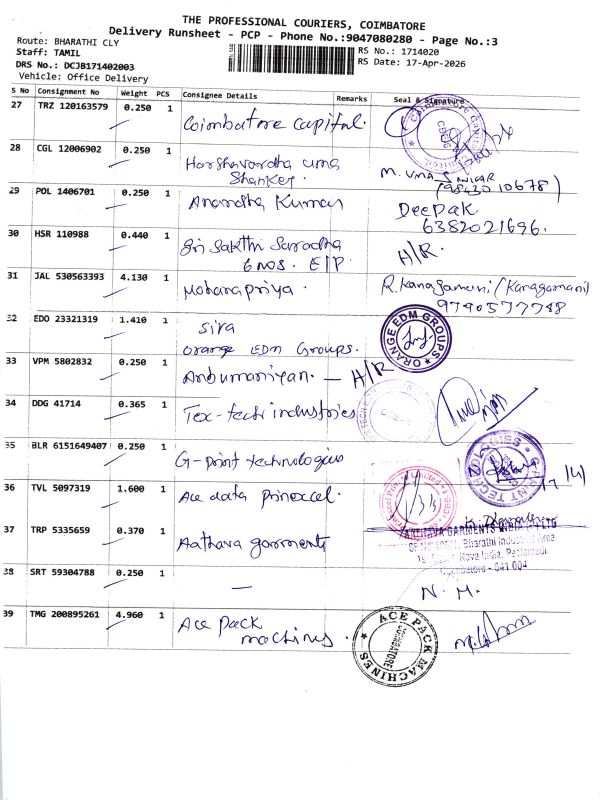 THE PROFESSIONAL COURIERS, COIMBATORE
Delivery Runsheet - PCP - Phone No.:9047080280 - Page No.:3
Route: BHARATHI CLY
Staff: TAMIL
DRS No.: DCJB171402003
Vehicle: Office Delivery
RS No.: 1714020
RS Date: 17-Apr-2026
S No Consignment No Weight PCS Consignee Details Remarks Seal & Signature
27 TRZ 120163579 0.250 1 Coimbatore capital.
28 CGL 12006902 0.250 1 Harshavardha uma
Shanker M. UMA SANKAR
(9843010678)
29 POL 1406701 0.250 1 Anandha Kumar Deepak
6382021696.
30 HSR 110988 0.440 1 Sri Sakthi Saradha H/R.
6 nos. E/P
31 JAL 530563393 4.130 1 Mohanapriya. R. Kanagamani (Kanagamani)
9790577788
32 EDO 23321319 1.410 1 Siva
Orange EDM Groups. ORANGE EDM GROUPS
33 VPM 5802832 0.250 1 Anbumaniyan. — H/R
34 DDG 41714 0.365 1 Tex-tech industries
35 BLR 6151649407 0.250 1 G-Point technologies
17/4
36 TVL 5097319 1.600 1 Ace data prinexcel.
37 TRP 5335659 0.370 1 Aathava garments
AATHAVA GARMENTS INDIA P LTD
Bharathi Industrial Area
Nava India, Peelamedu
Coimbatore - 641 004
38 SRT 59304788 0.250 1 — N. H.
39 TMG 200895261 4.960 1 Ace Pack
machines. ACE PACK MACHINES
COIMBATORE